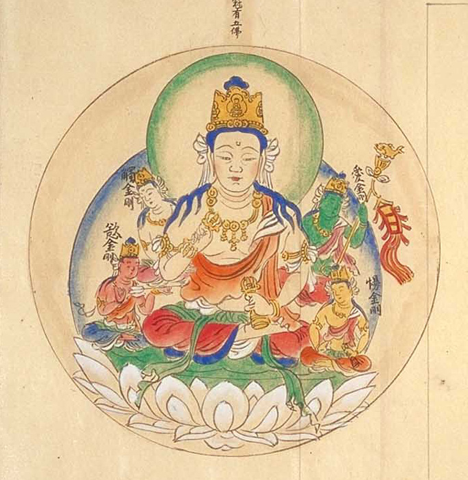 有五佛
愛金
觸金剛
慾金剛
慢金剛